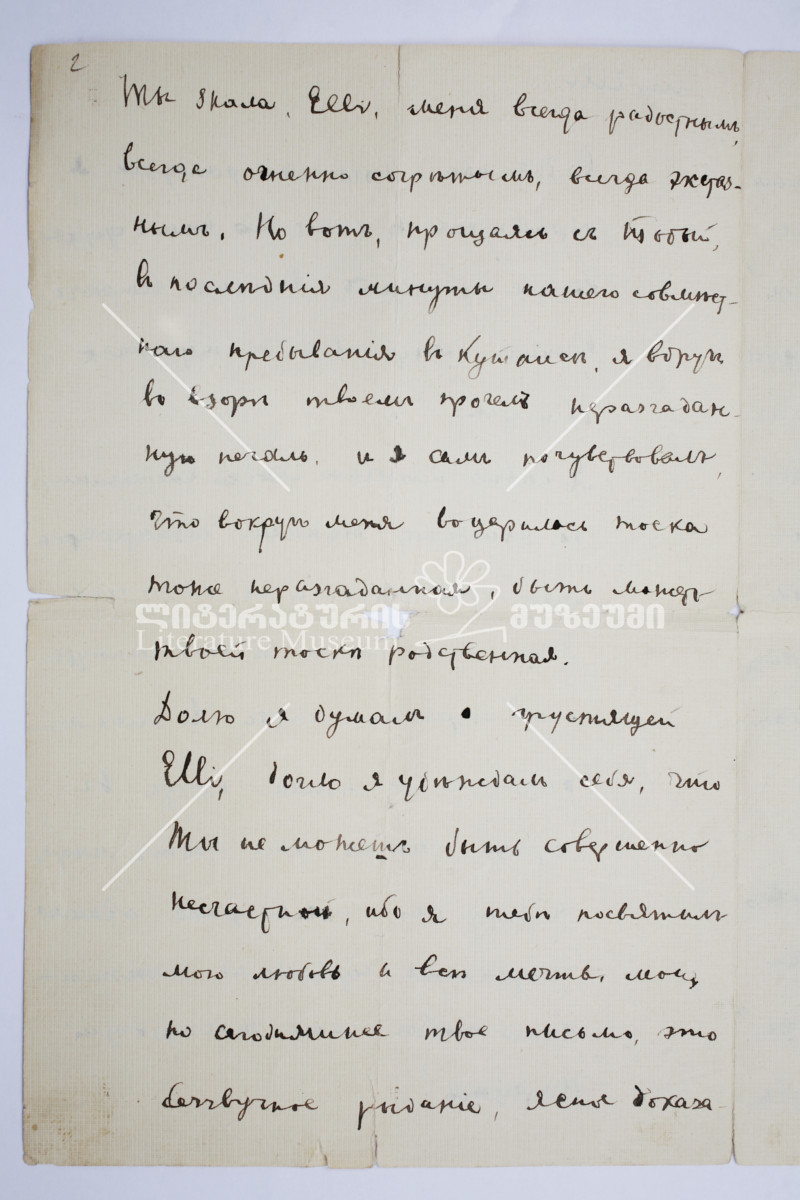 2
Ты знала, Elli, меня всегда радостнымъ,
всегда огненно согрѣтымъ, всегда экстаз-
нымъ. Но вотъ, прощаясь съ Тобой,
въ послѣднія минуты нашего совмѣст-
наго пребыванія въ Кутаисѣ, я вдругъ
во взорѣ твоемъ прочелъ неразгадан-
ную печаль, и я самъ почувствовалъ,
что вокругъ меня воцарилась тоска
тоже неразгаданная, быть можетъ
ლიტერატურის მუზეუმი
Literature Museum
твоей тоскѣ родственная.
Долго я думалъ о грустящей
Elli, долго я убѣждалъ себя, что
Ты не можешь быть совершенно
несчастной, ибо я тебѣ посвятилъ
мою любовь и всѣ мечты мои,
но сегодняшнее твое письмо, это
беззвучное рыданіе, ясно доказа-